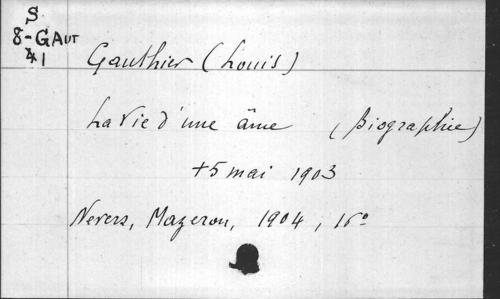 S
8-GAUT
41
Gauthier (Louis)
La Vie d'une âme (Biographie)
+5 mai 1903
Nevers, Mazeron, 1904, 16°